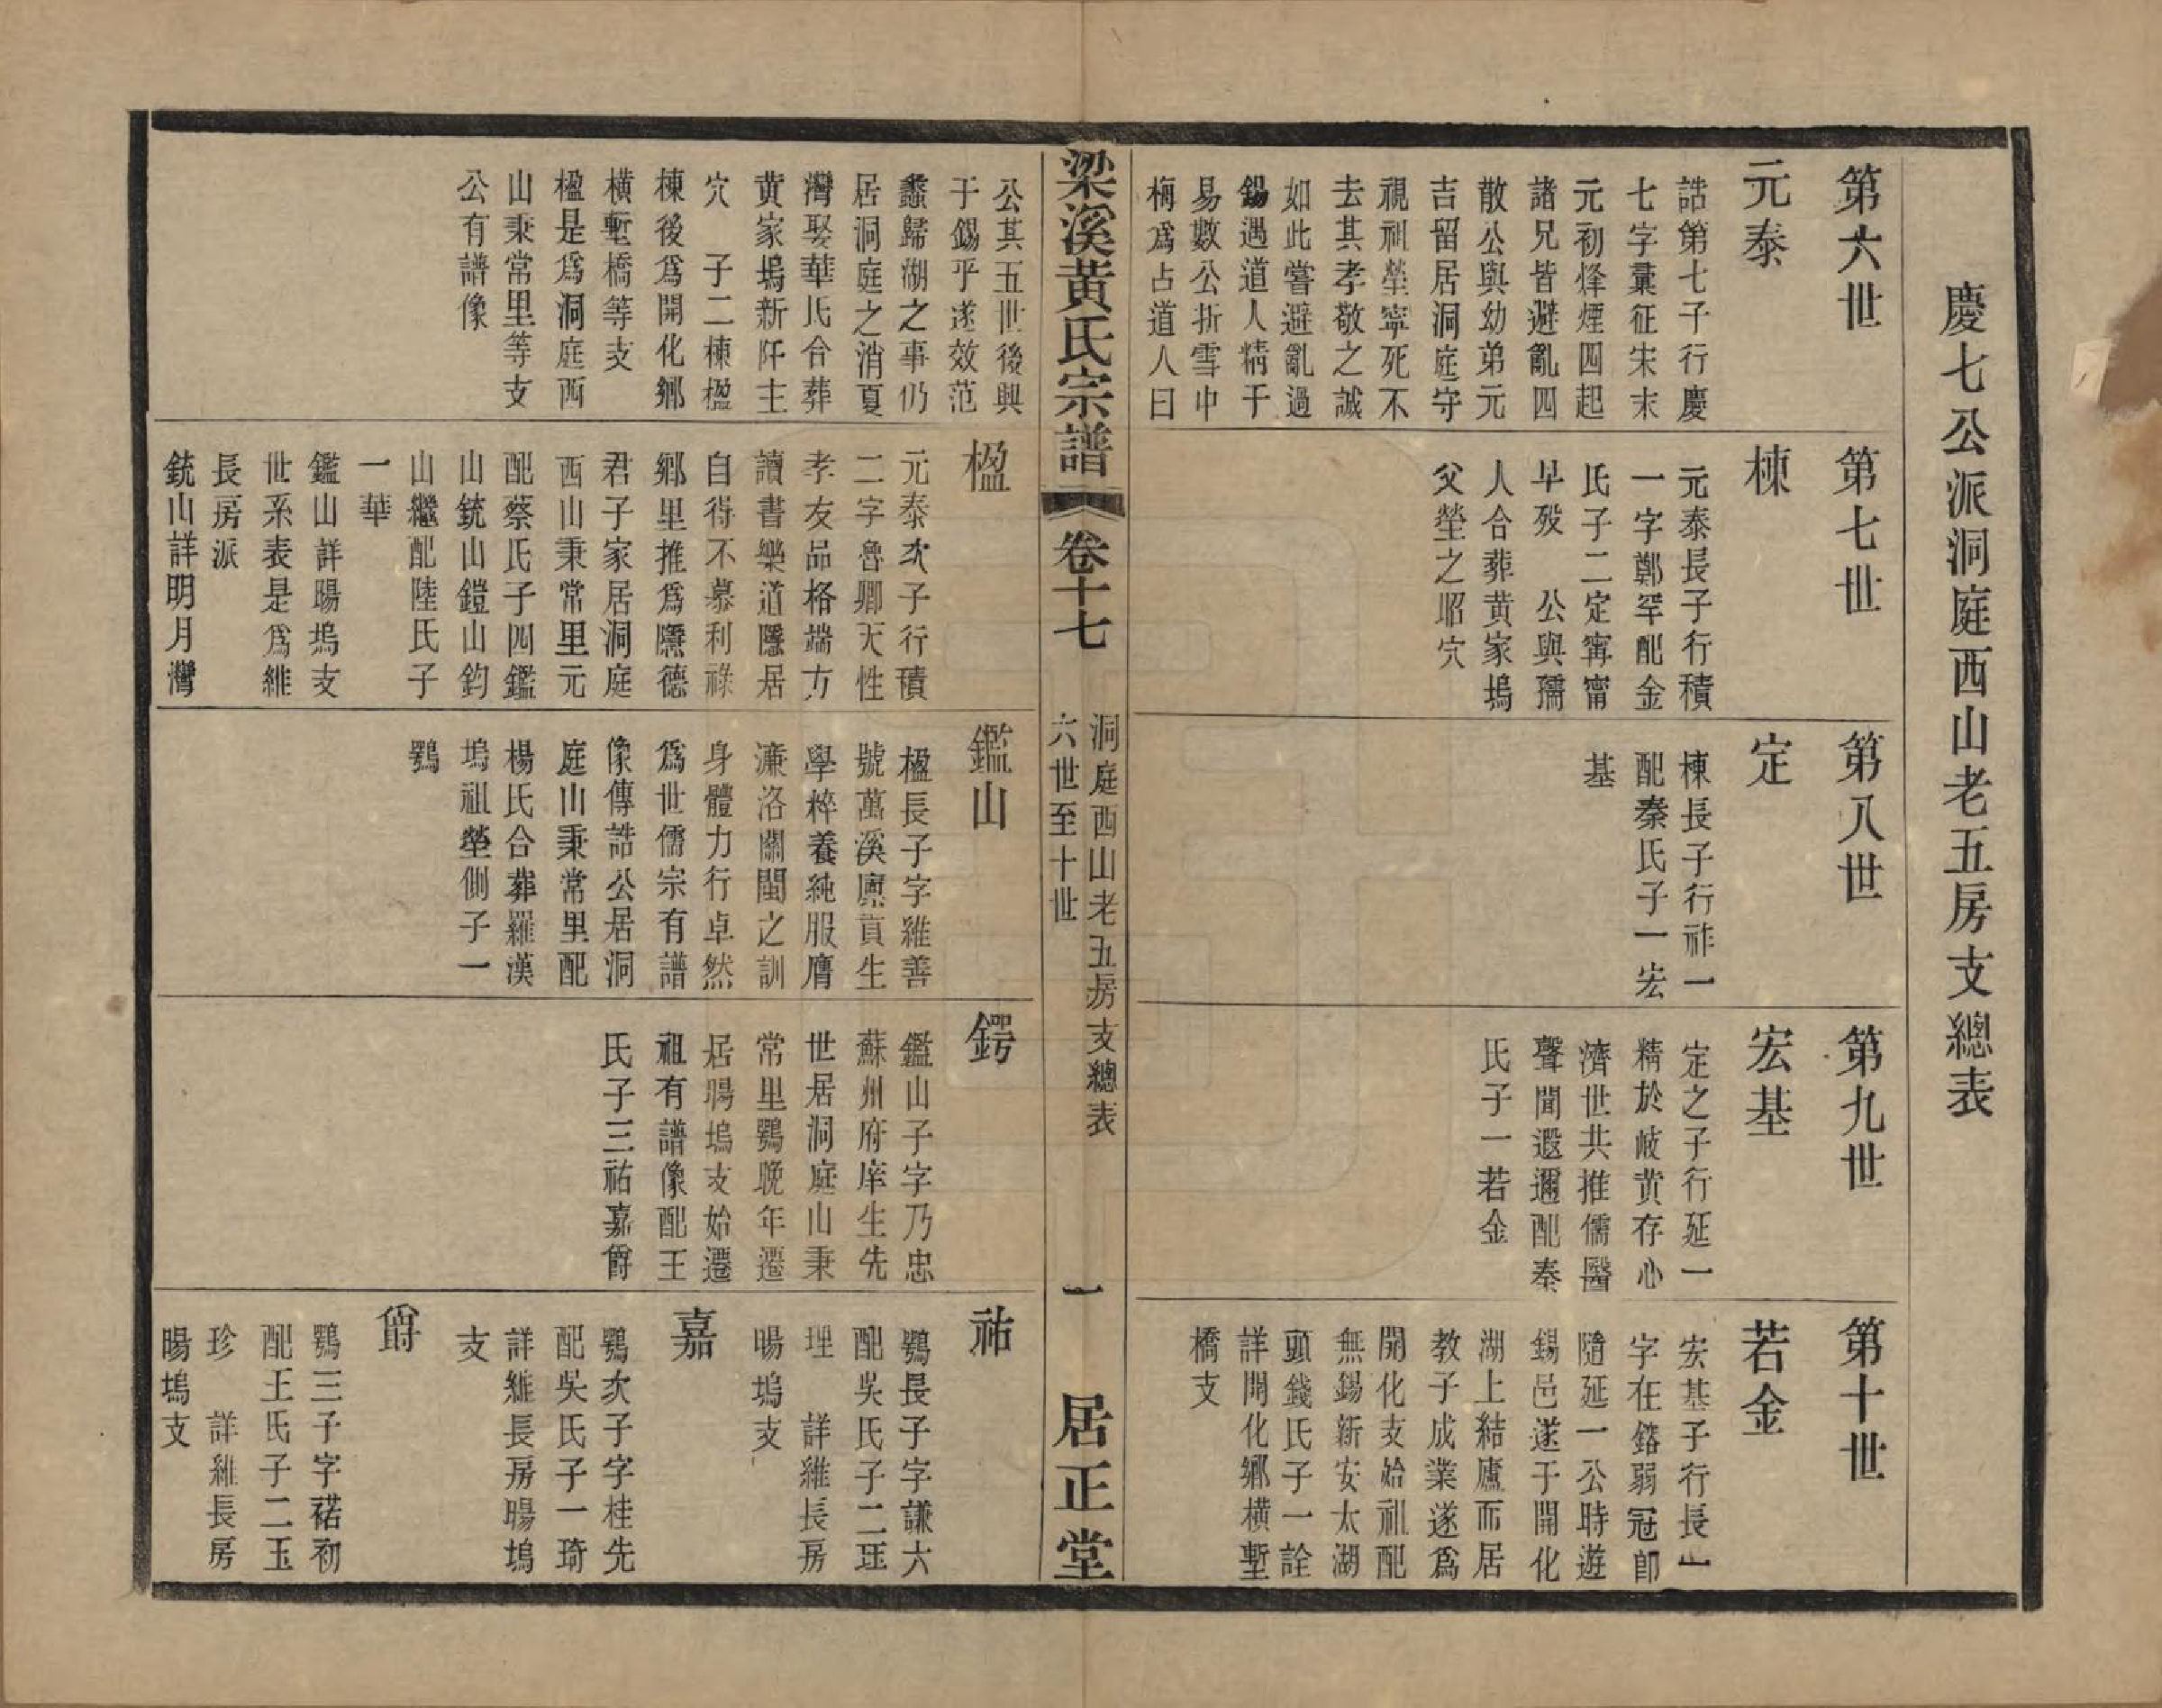 慶七公派洞庭西山老五房支總表
第六世
元泰
誥第七子行慶
七字彙征宋末
元初烽煙四起
諸兄皆避亂四
散公與幼弟元
吉留居洞庭守
視祖塋寧死不
去其孝敬之誠
如此嘗避亂過
錫遇道人精于
易數公折雪中
梅爲占道人曰
第七世
棟
元泰長子行積
一字鄭罕配金
氏子二定寗甯
早歿　公與孺
人合葬黃家塢
父塋之昭穴
第八世
定
棟長子行祚一
配秦氏子一宏
基
第九世
宏基
定之子行延一
精於岐黃存心
濟世共推儒醫
聲聞遐邇配秦
氏子一若金
第十世
若金
宏基子行長一
字在鎔弱冠卽
隨延一公時遊
錫邑遂于開化
湖上結廬而居
教子成業遂爲
開化支始祖配
無錫新安太湖
頭錢氏子一詮
詳開化鄉橫塹
橋支
梁溪黃氏宗譜
卷十七
洞庭西山老五房支總表
六世至十世
一
居正堂
公其五世後興
于錫乎遂效范
蠡歸湖之事仍
居洞庭之消夏
灣娶華氏合葬
黃家塢新阡主
穴　子二棟楹
棟後爲開化鄉
橫塹橋等支
楹是爲洞庭西
山秉常里等支
公有譜像
楹
元泰次子行積
二字魯卿天性
孝友品格端方
讀書樂道隱居
自得不慕利祿
鄉里推爲隱德
君子家居洞庭
西山秉常里元
配蔡氏子四鑑
山銃山鎧山鈞
山繼配陸氏子
一華
鑑山詳暘塢支
世系表是爲維
長房派
銃山詳明月灣
鑑山
楹長子字維善
號萬溪廩貢生
學粹養純服膺
濂洛關閩之訓
身體力行卓然
爲世儒宗有譜
像傳誥公居洞
庭山秉常里配
楊氏合葬羅漢
塢祖塋側子一
鶚
鍔
鑑山子字乃忠
蘇州府庠生先
世居洞庭山秉
常里鶚晚年遷
居暘塢支始遷
祖有譜像配王
氏子三祐嘉爵
祐
鶚長子字謙六
配吳氏子二珏
理　詳維長房
暘塢支
嘉
鶚次子字桂先
配吳氏子一琦
詳維長房暘塢
支
爵
鶚三子字禇初
配王氏子二玉
珍　詳維長房
暘塢支